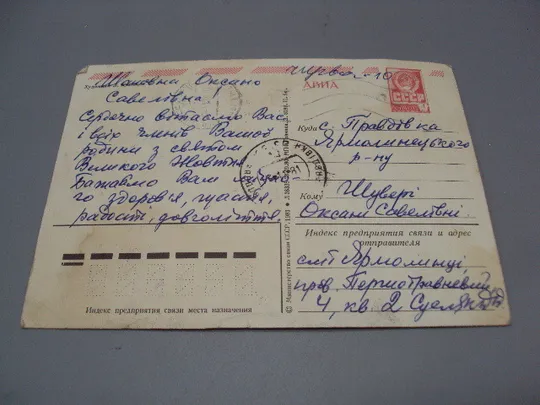 Шановна Оксано
Савеліївна!
Сердечно вітаємо Вас
і всіх членів Вашої
родини з святом
Великого Жовтня.
Бажаємо Вам міцно-
го здоров'я, щастя,
радості, довголіття.
АВИА
СССР
Куда с. Правдівка
Ярмолинецького
р-ну
Кому Шувері
Оксані Савеліївні.
Индекс предприятия связи и адрес
отправителя
смт Ярмолинці,
пров. Першотравневий
4, кв 2
Индекс предприятия связи места назначения
© Министерство связи СССР, 1983